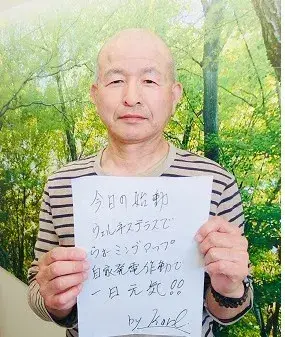 今日の始動
ウェルネステラスで
ウォーミングアップ
自家発電作動で
一日元気!!
by Kare.